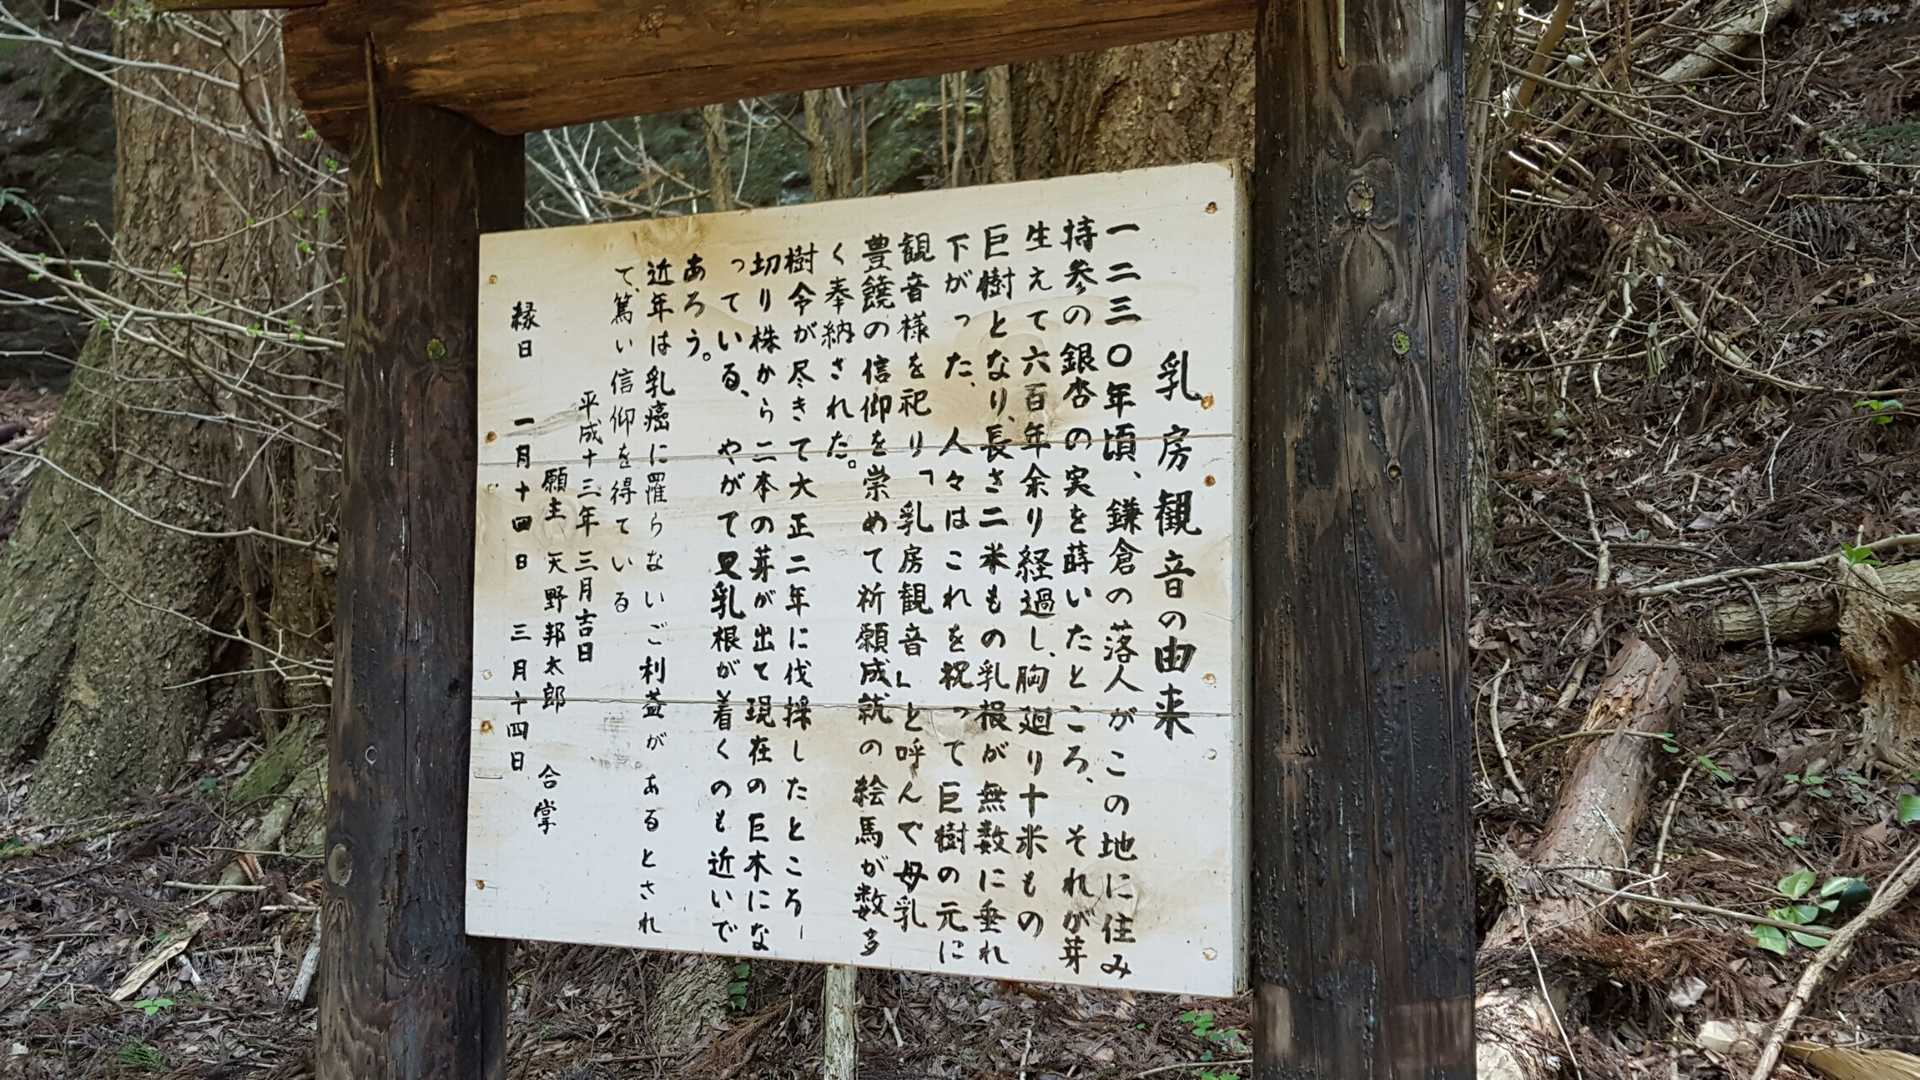 乳房観音の由来
一二三〇年頃、鎌倉の落人がこの地に住み
持参の銀杏の実を蒔いたところ、それが芽
生えて六百年余り経過し、胸廻り十米もの
巨樹となり、長さ二米もの乳根が無数に垂れ
下がった、人々はこれを祝って巨樹の元に
観音様を祀り「乳房観音」と呼んで母乳
豊饒の信仰を崇めて祈願成就の絵馬が数多
く奉納された。
樹令が尽きて大正二年に伐採したところ、
切り株から二本の芽が出て現在の巨木にな
っている、やがて又乳根が着くのも近いで
あろう。
近年は乳癌に罹らないご利益があるとされ
て、篤い信仰を得ている
平成十三年三月吉日
願主 天野邦太郎 合掌
縁日 一月十四日 三月十四日